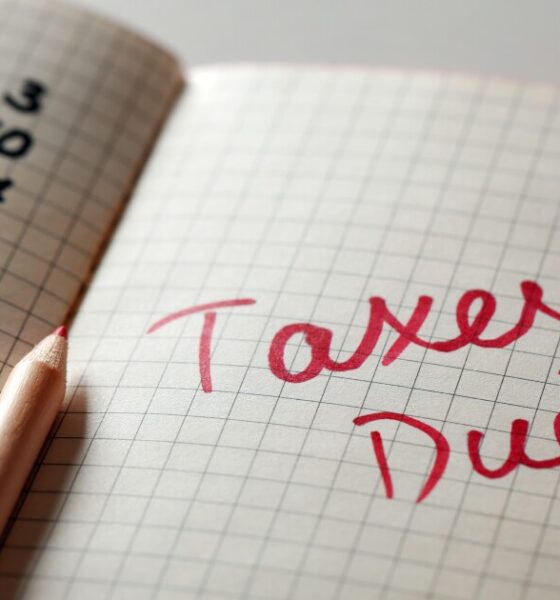 3
Taxes
Du